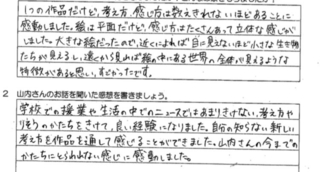 1つの作品だけど、考え方、感じ方は数えきれないほどあることに
感動しました。絵は平面だけど、感じ方はたくさんあって立体な感じがし
ました。大きな絵だったので、近くによれば目に見えないほど小さな生き物
たちが見えるし、遠くから見れば絵の中にある世界の全体が見えるような
特徴があると思い、すごかったです。
2 山内さんのお話を聞いた感想を書きましょう。
学校での授業や生活の中でのニュースではあまりきけない、考え方や
りそうのかたちをきけて、良い経験になりました。自分の知らない新しい
考え方を作品を通して感じることができました。山内さんの今までの
かたちにとらわれない感じに感動しました。